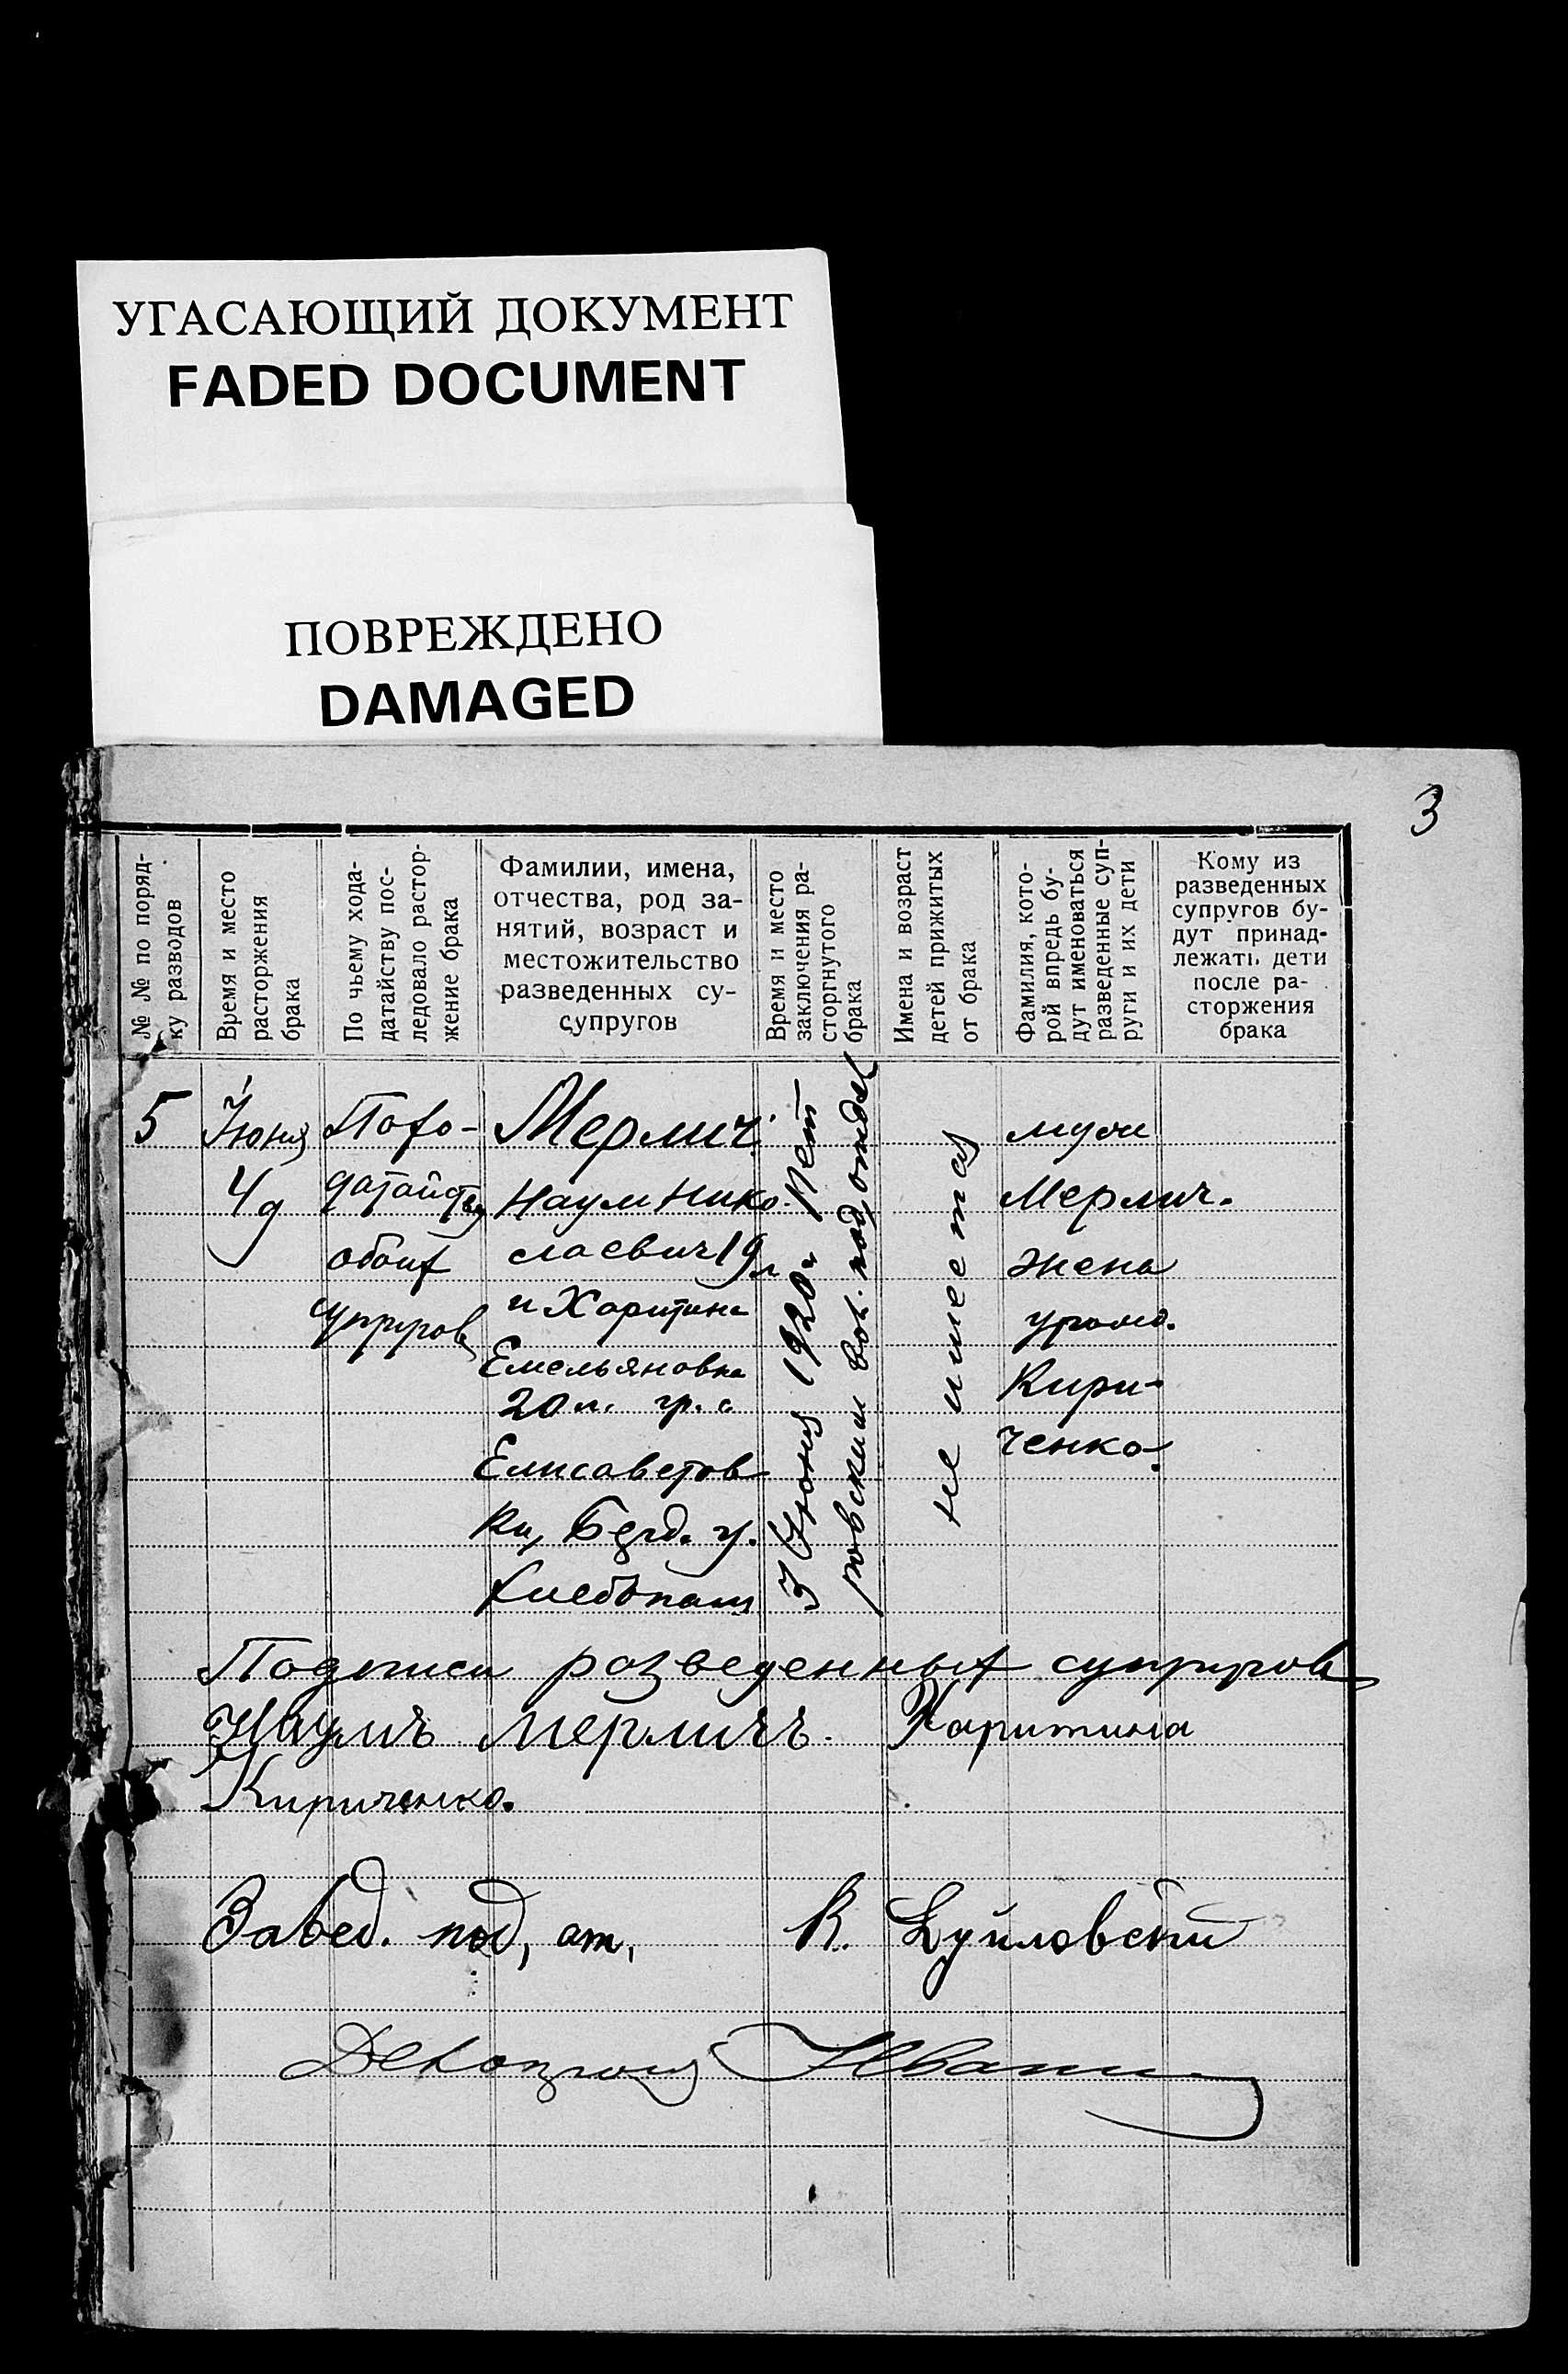 УГАСАЮЩИЙ ДОКУМЕНТ
FADED DOCUMENT
ПОВРЕЖДЕНО
DAMAGED
3
№ № по поряд-
ку разводов
Время и место
расторжения
брака
По чьему хода-
датайству пос-
ледовало растор-
жение брака
Фамилии, имена,
отчества, род за-
нятий, возраст и
местожительство
разведенных су-
супругов
Время и место
заключения ра-
сторгнутого
брака
Имена и возраст
детей прижитых
от брака
Фамилия, кото-
рой впредь бу-
дут именоваться
разведенные суп-
руги и их дети
Кому из
разведенных
супругов бу-
дут принад-
лежать дети
после ра-
сторжения
брака
5
Июня
4 д
По хо-
датайству
обоих
супругов
Мерлич
Наум Нико-
лаевич 19 л
и Харитина
Емельяновна
20 л. гр. с
Елисаветов
ки, у.
Хлебопаш
3 Июня 1920 г
ровским вол. подотдел
не имеется
муж
Мерлич.
жена
Кири-
ченко.
Подписи разведенных супругов
Наумъ Мерличъ. Харитина
Кириченко.
Завед. под, от,
К.